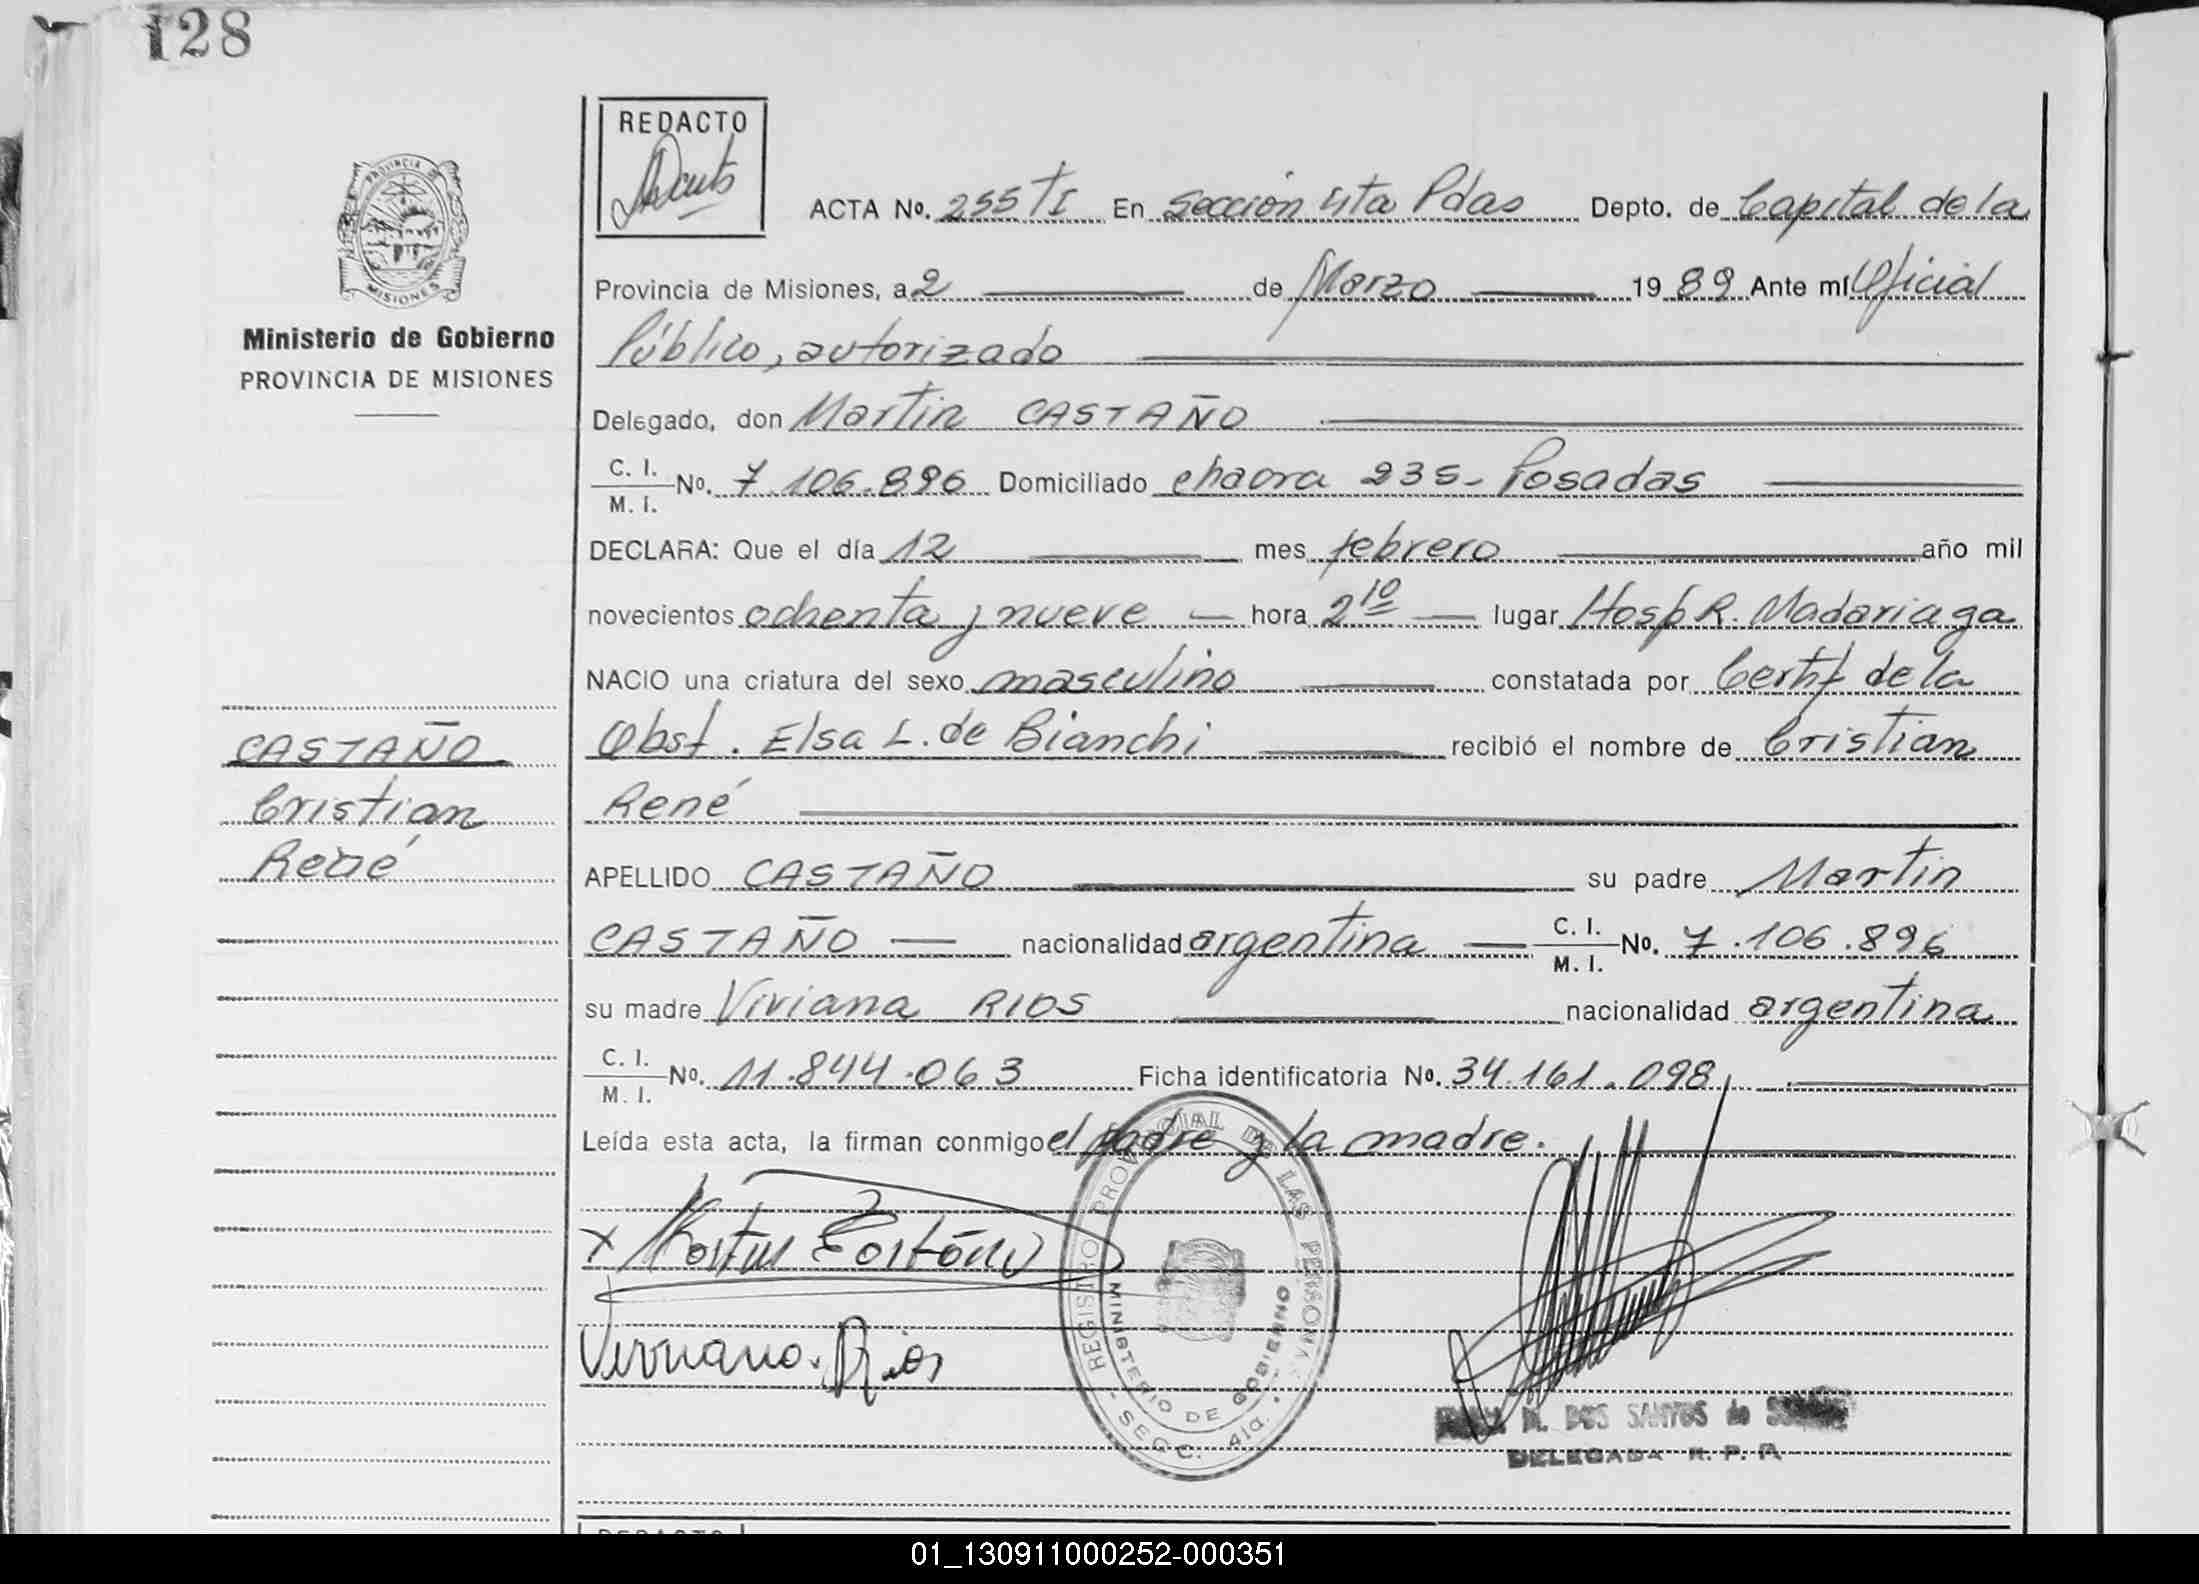 128
PROVINCIA DE
MISIONES
Ministerio de Gobierno
PROVINCIA DE MISIONES
CASTAÑO
Cristian
René
REDACTO
ACTA No. 255 TI En Sección 4ta Pdas Depto. de Capital de la
Provincia de Misiones, a 2 de Marzo 1989 Ante mí Oficial
Público, autorizado
Delegado, don Martin CASTAÑO
C. I.
M. I. No. 7.106.896 Domiciliado chacra 235- Posadas
DECLARA: Que el día 12 mes febrero año mil
novecientos ochenta y nueve hora 2 10 lugar Hosp R. Madariaga
NACIO una criatura del sexo masculino constatada por Certif de la
Obst. Elsa L. de Bianchi recibió el nombre de Cristian
René
APELLIDO CASTAÑO su padre Martin
CASTAÑO nacionalidad argentina C. I.
M. I. No. 7.106.896
su madre Viviana RIOS nacionalidad argentina
C. I.
M. I. No. 11.844.063 Ficha identificatoria No. 34.161.098
Leída esta acta, la firman conmigo el padre y la madre.
x Martin Castaño
Viviana Rios
REGISTRO PROVINCIAL DE LAS PERSONAS
MINISTERIO DE GOBIERNO
SECC. 4ta.
M. DOS SANTOS de
DELEGADA R. P. P.
REDACTO
01_130911000252-000351